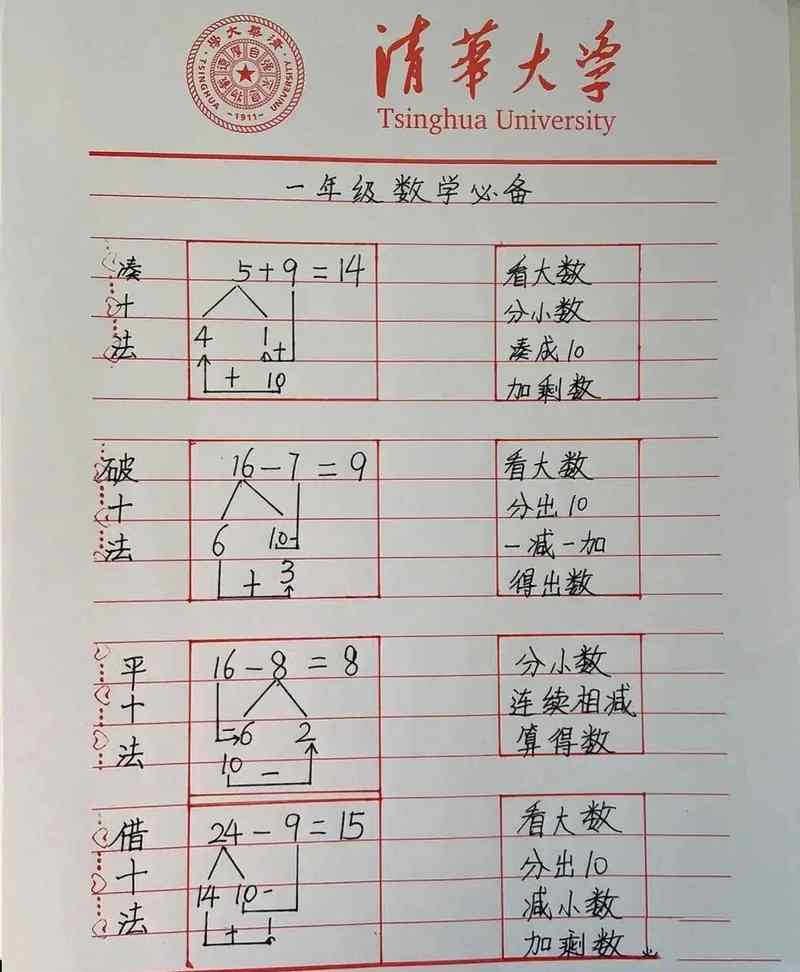 清华大学
TSINGHUA UNIVERSITY
-1911-
清華大学
Tsinghua University
一年级数学必备
凑十法
5+9=14
4 1 +
+ 10
看大数
分小数
凑成10
加剩数
破十法
16-7=9
6 10-
+ 3
看大数
分出10
一减一加
得出数
平十法
16-8=8
-6 2
10 -
分小数
连续相减
算得数
借十法
24-9=15
14 10-
+ 1
看大数
分出10
减小数
加剩数